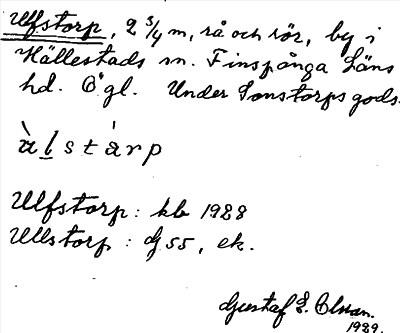 Ulfstorp, 2 3/4 m, rå och rör, by i
Hällestads sn. Finspånga Läns
hd. Ögl. Under Sonstorps gods.
àlstárp
Ulfstorp: kb 1928
Ullstorp: dj 55, ek.
Gustaf E. Olsson.
1929.